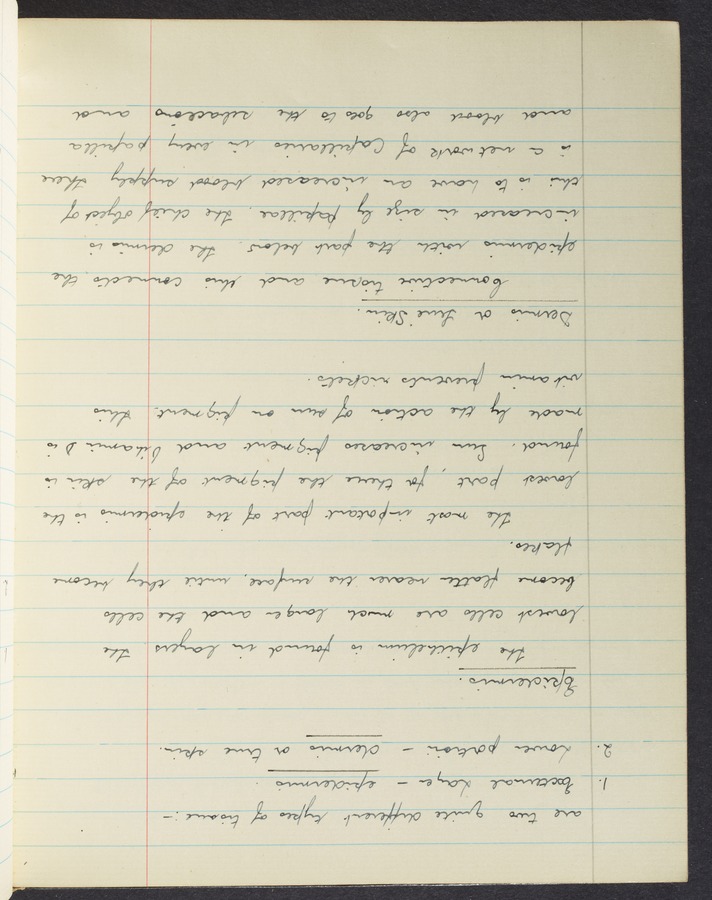 are two quite different types of tissue :-
1. External Layer - epidermis.
2. Lower portion - dermis or true skin.
Epidermis.
the epithelium is found in layers the
lowest cells are much larger and the cells
become flatter nearer the surface, until they become
flakes.
the most impotant part of the epidermis is the
lowest part, for there the pigment of the skin is
found. Sun increases pigment and Vitamin D is
made by the action of sun on pigment. this
vitamin prevents rickets.
Dermis or true Skin.
Connective tissue and this connects the
epidermis with the part below. the dermis is
increased in size by papillae. the chief object of
this is to have an increased blood supply there
is a network of Capillaries in every papilla
and blood also goes to the sebaceous and